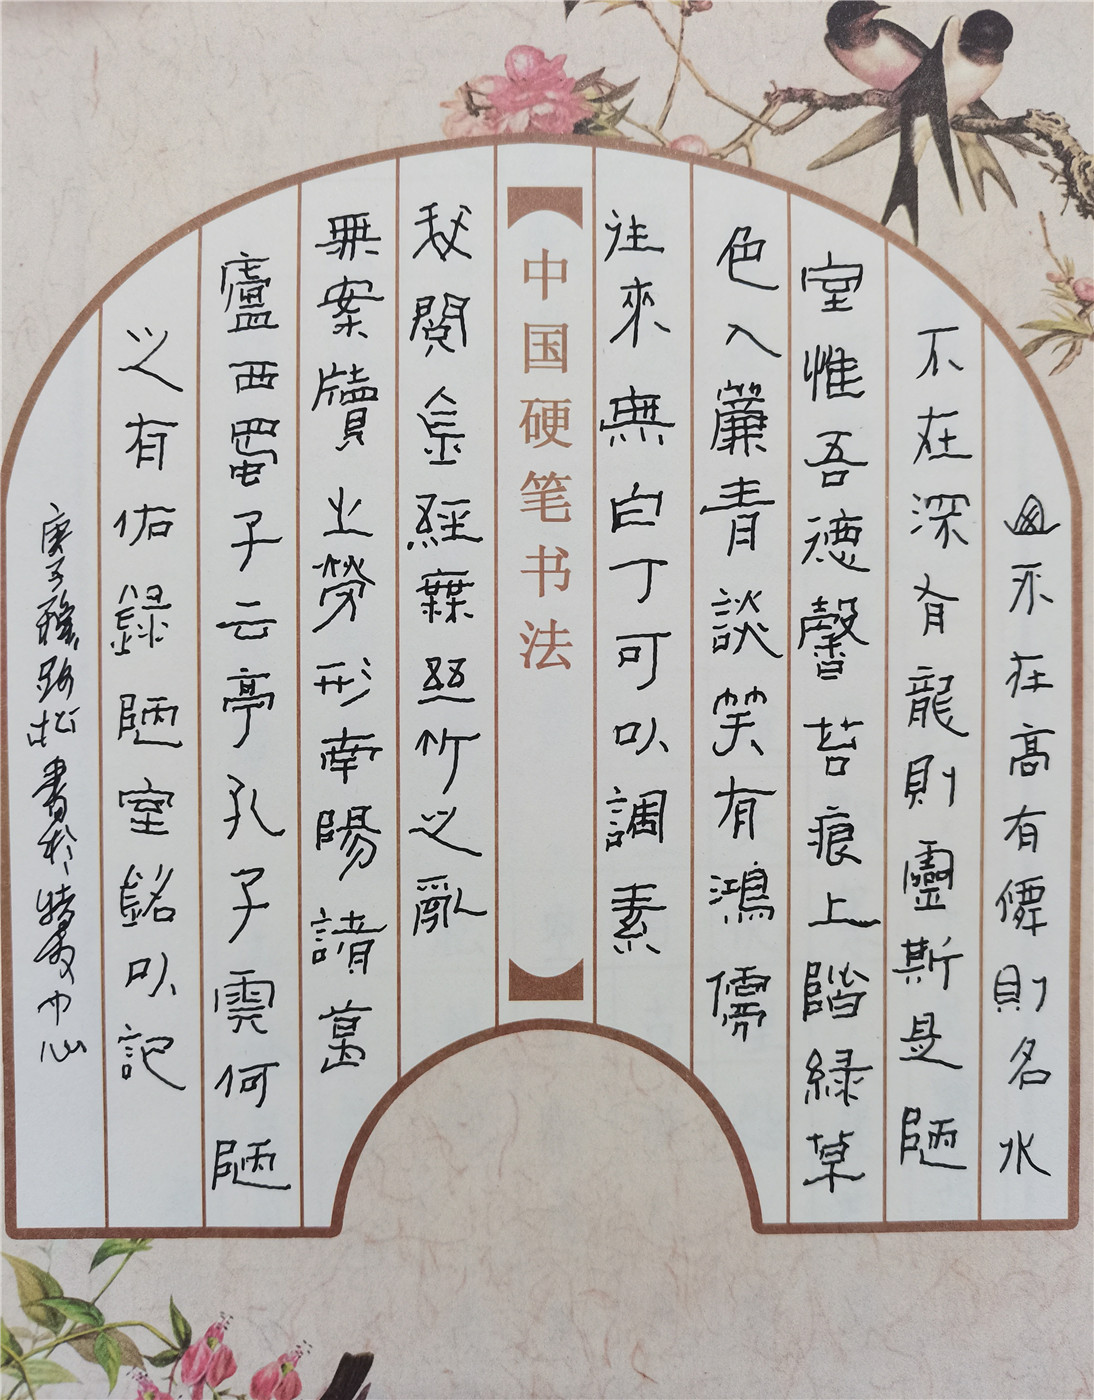 山不在高有僊則名水
不在深有龍則靈斯是陋
室惟吾德馨苔痕上階緑草
色入簾青談笑有鴻儒
往來無白丁可以調素
中国硬笔书法
閲金經無絲竹之亂
無案牘之勞形南陽諸葛
廬西蜀子云亭孔子雲何陋
之有佑録陋室銘以記
庚子 路松書於 中心